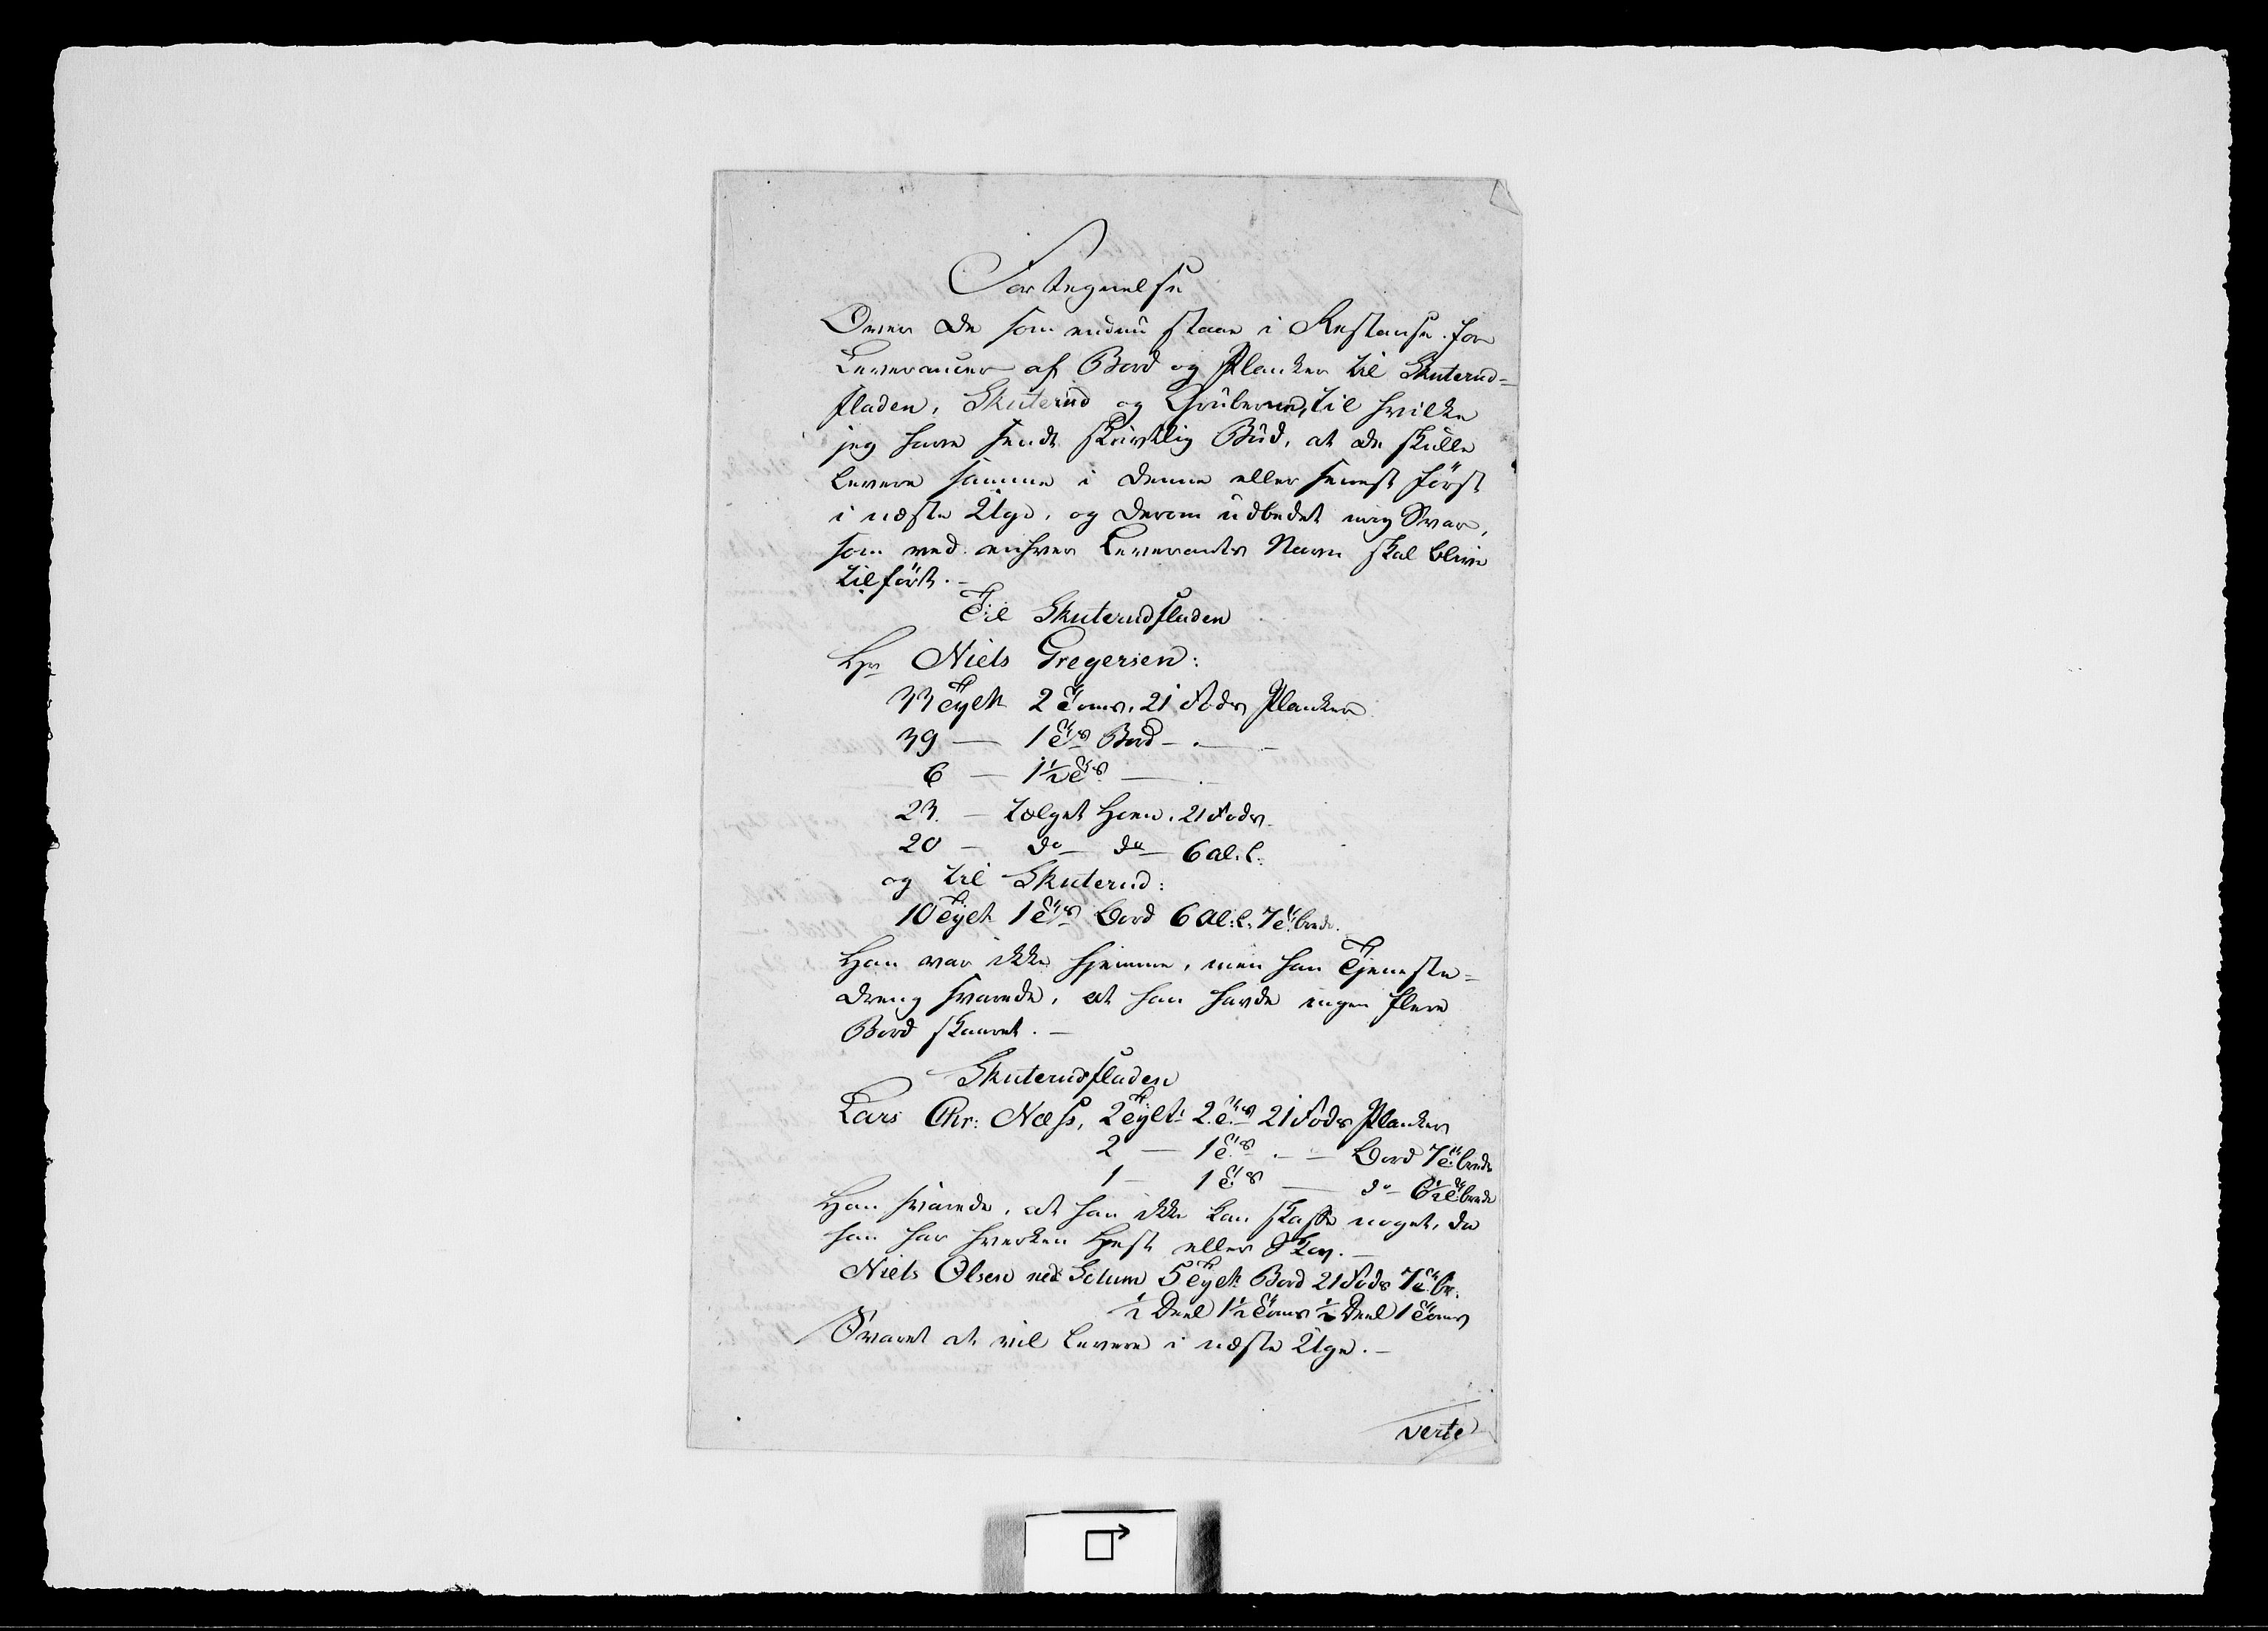 Fortegnelse
Over de som endnu staae i Restanse for
Leverancer af Bord og Planker til Skuterud=
fladen, Skuterud og Gruberne, til hvilke
jeg have sendt skrivtlig Bud, at de skulle
levere samme i denne eller senest först
i næste Uge, og derom udbedet mig Svar,
som ved enhver Leverants Navn skal blive
tilfört. –
Til Skuterudfladen
Hr Niels Gregersen:
33 Tylt 2 Toms, 21 Fods Planker
39 — 1 T:s Bord – . —
6 — 1½ T:s —
23. — tælget Hon, 21 Fods
20 — do — do — 6 Al: l:
og til Skuterud:
10 Tylt 1 T:s Bord 6 Al: l: 7 T: brede.
Han var ikke hjemme, men han Tjeneste=
dreng svarede, at han havde ingen flere
Bord skaaret. —
Skuterudfladen
Lars Chr: Næss, 2 Tylt 2 T:s 21 Fods Planker
2 — 1 T:s . — Bord 7 T: brede
1 — 1 T:s — do 6½ T: brede
Han svarede, at han ikke kan skaffe noget, da
han har hverken Hest eller Skov. —
Niels Olsen ned: Solum 5 Tylt Bord 21 Fods 7 T: br:
½ Deel 1½ Toms ½ Deel 1 Toms
Svaret at vil levere i næste Uge. —
verte